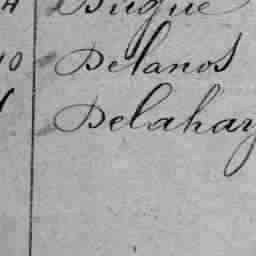 4 Duque
10 Delanos
Delahay